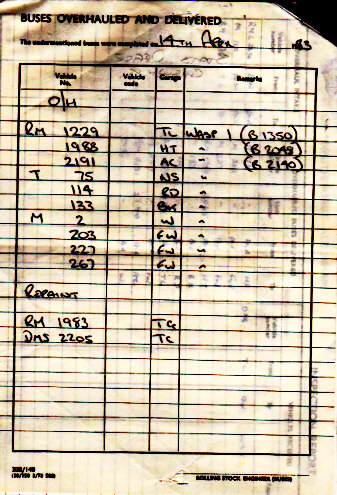 BUSES OVERHAULED AND DELIVERED
The undermentioned buses were completed on 14TH APRIL 1983
Vehicle No. Vehicle code Garage Remarks
O/H
RM 1229 TL WASP 1 (B 1350)
1988 HT " (B 2049)
2191 AC " (B 2140)
T 75 NS "
114 RD "
133 "
M 2 W "
203 FW "
227 FW "
267 FW "
REPAINT
RM 1983 TC
DMS 2205 TC
ROLLING STOCK ENGINEER (BUSES)